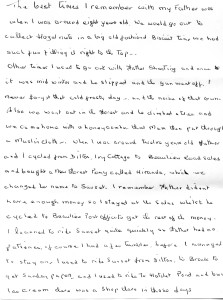 The best times I remember with my Father was
when I was around eight years old. We would go out to
collect Hazel nuts in a big old fashioned Biscuit Tin, we had
such fun filling it right to the Top.
Other times I used to go out with Father Shooting and once
it was mid winter and he slipped and the gun went off. I
never forgot that cold frosty day. and the noise of that gun.
Also we went out in the forest and he climbed a tree and
we came home with a honey comb that Mum then put through
a Muslin cloth. When I was around twelve years old Father
and I cycled from Silton Ivy Cottage to Beaulieu Road sales
and bought a New Forest Pony called Miranda, which we
changed her name to Sunset. I remember Father didn't
have enough money so I stayed at the sales whilst he
cycled to Beaulieu Post office to get the rest of the money.
I learned to ride Sunset quite quickly as Father had no
patience, of course I had a few tumbles before I managed
to stay on. I used to ride Sunset from Silton to Brook to
get Sunday papers, and I used to ride to Pond and buy
Ice cream there was a shop there in those days